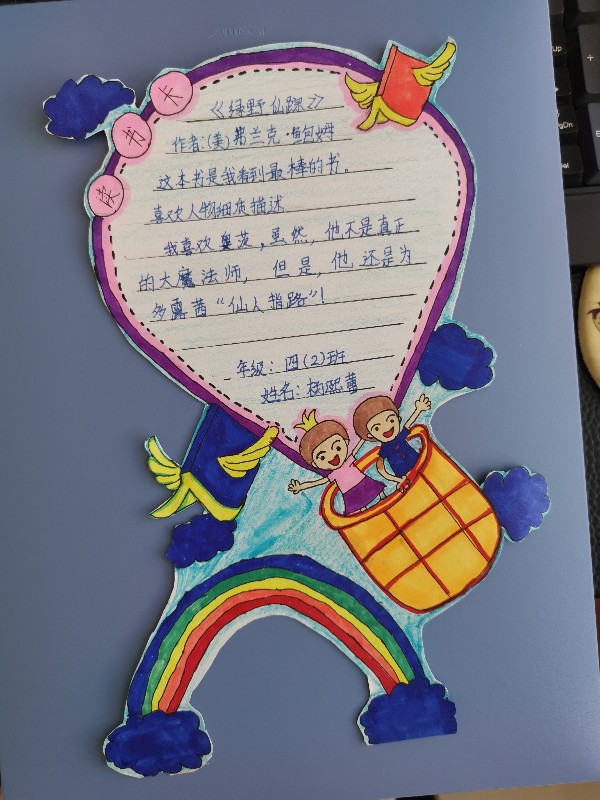 读书卡
《绿野仙踪》
作者:(美)弗兰克·鲍姆
这本书是我看到最棒的书。
喜欢人物细质描述
我喜欢奥茨,虽然,他不是真正
的大魔法师,但是,他还是为
多露茜“仙人指路”!
年级:四(2)班
姓名:杨熙蕾